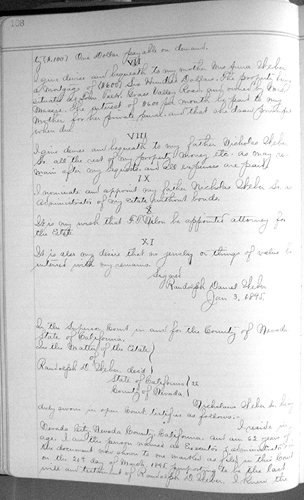 108
of ($1.00) One Dollar payable on demand.
VII
I give devise and bequeath to my mother Mrs Anna Weber
a mortgage of ($600) Six Hundred Dollars. The property being
situated on Grass Valley Road and owned by
The interest of $6.00 per month be paid to my
Mother for her private purse and that she
when due.
VIII
I give devise and bequeath to my father Nicholas Weber
Sr. all the rest of my property, money, etc. as may re-
main after my requests and all expenses are paid.
IX
I nominate and appoint my father Nicholas Weber Sr. as
Administrator of my Estate without bonds.
X
It is my wish that be appointed attorney for
the Estate.
XI
It is also my desire that no jewelry or things of value be
interred with my remains.
Signed
Randolph Daniel Weber
Jan 3, 1895.
In the Superior Court in and for the County of Nevada
State of California.
In the Matter of the Estate
of
Randolph D. Weber, dec'd
State of California
County of Nevada
ss
Nicholaus Weber Sr. being
duly sworn in open Court testifies as follows:—
I reside in
Nevada City, Nevada County, California, and am 62 years of
age. I am the person named as Executor & Administrator in
the document now shown to me marked as filed in this Court
on the 26th day of March 1895, purporting to be the last
will and testament of Randolph D. Weber. I knew the